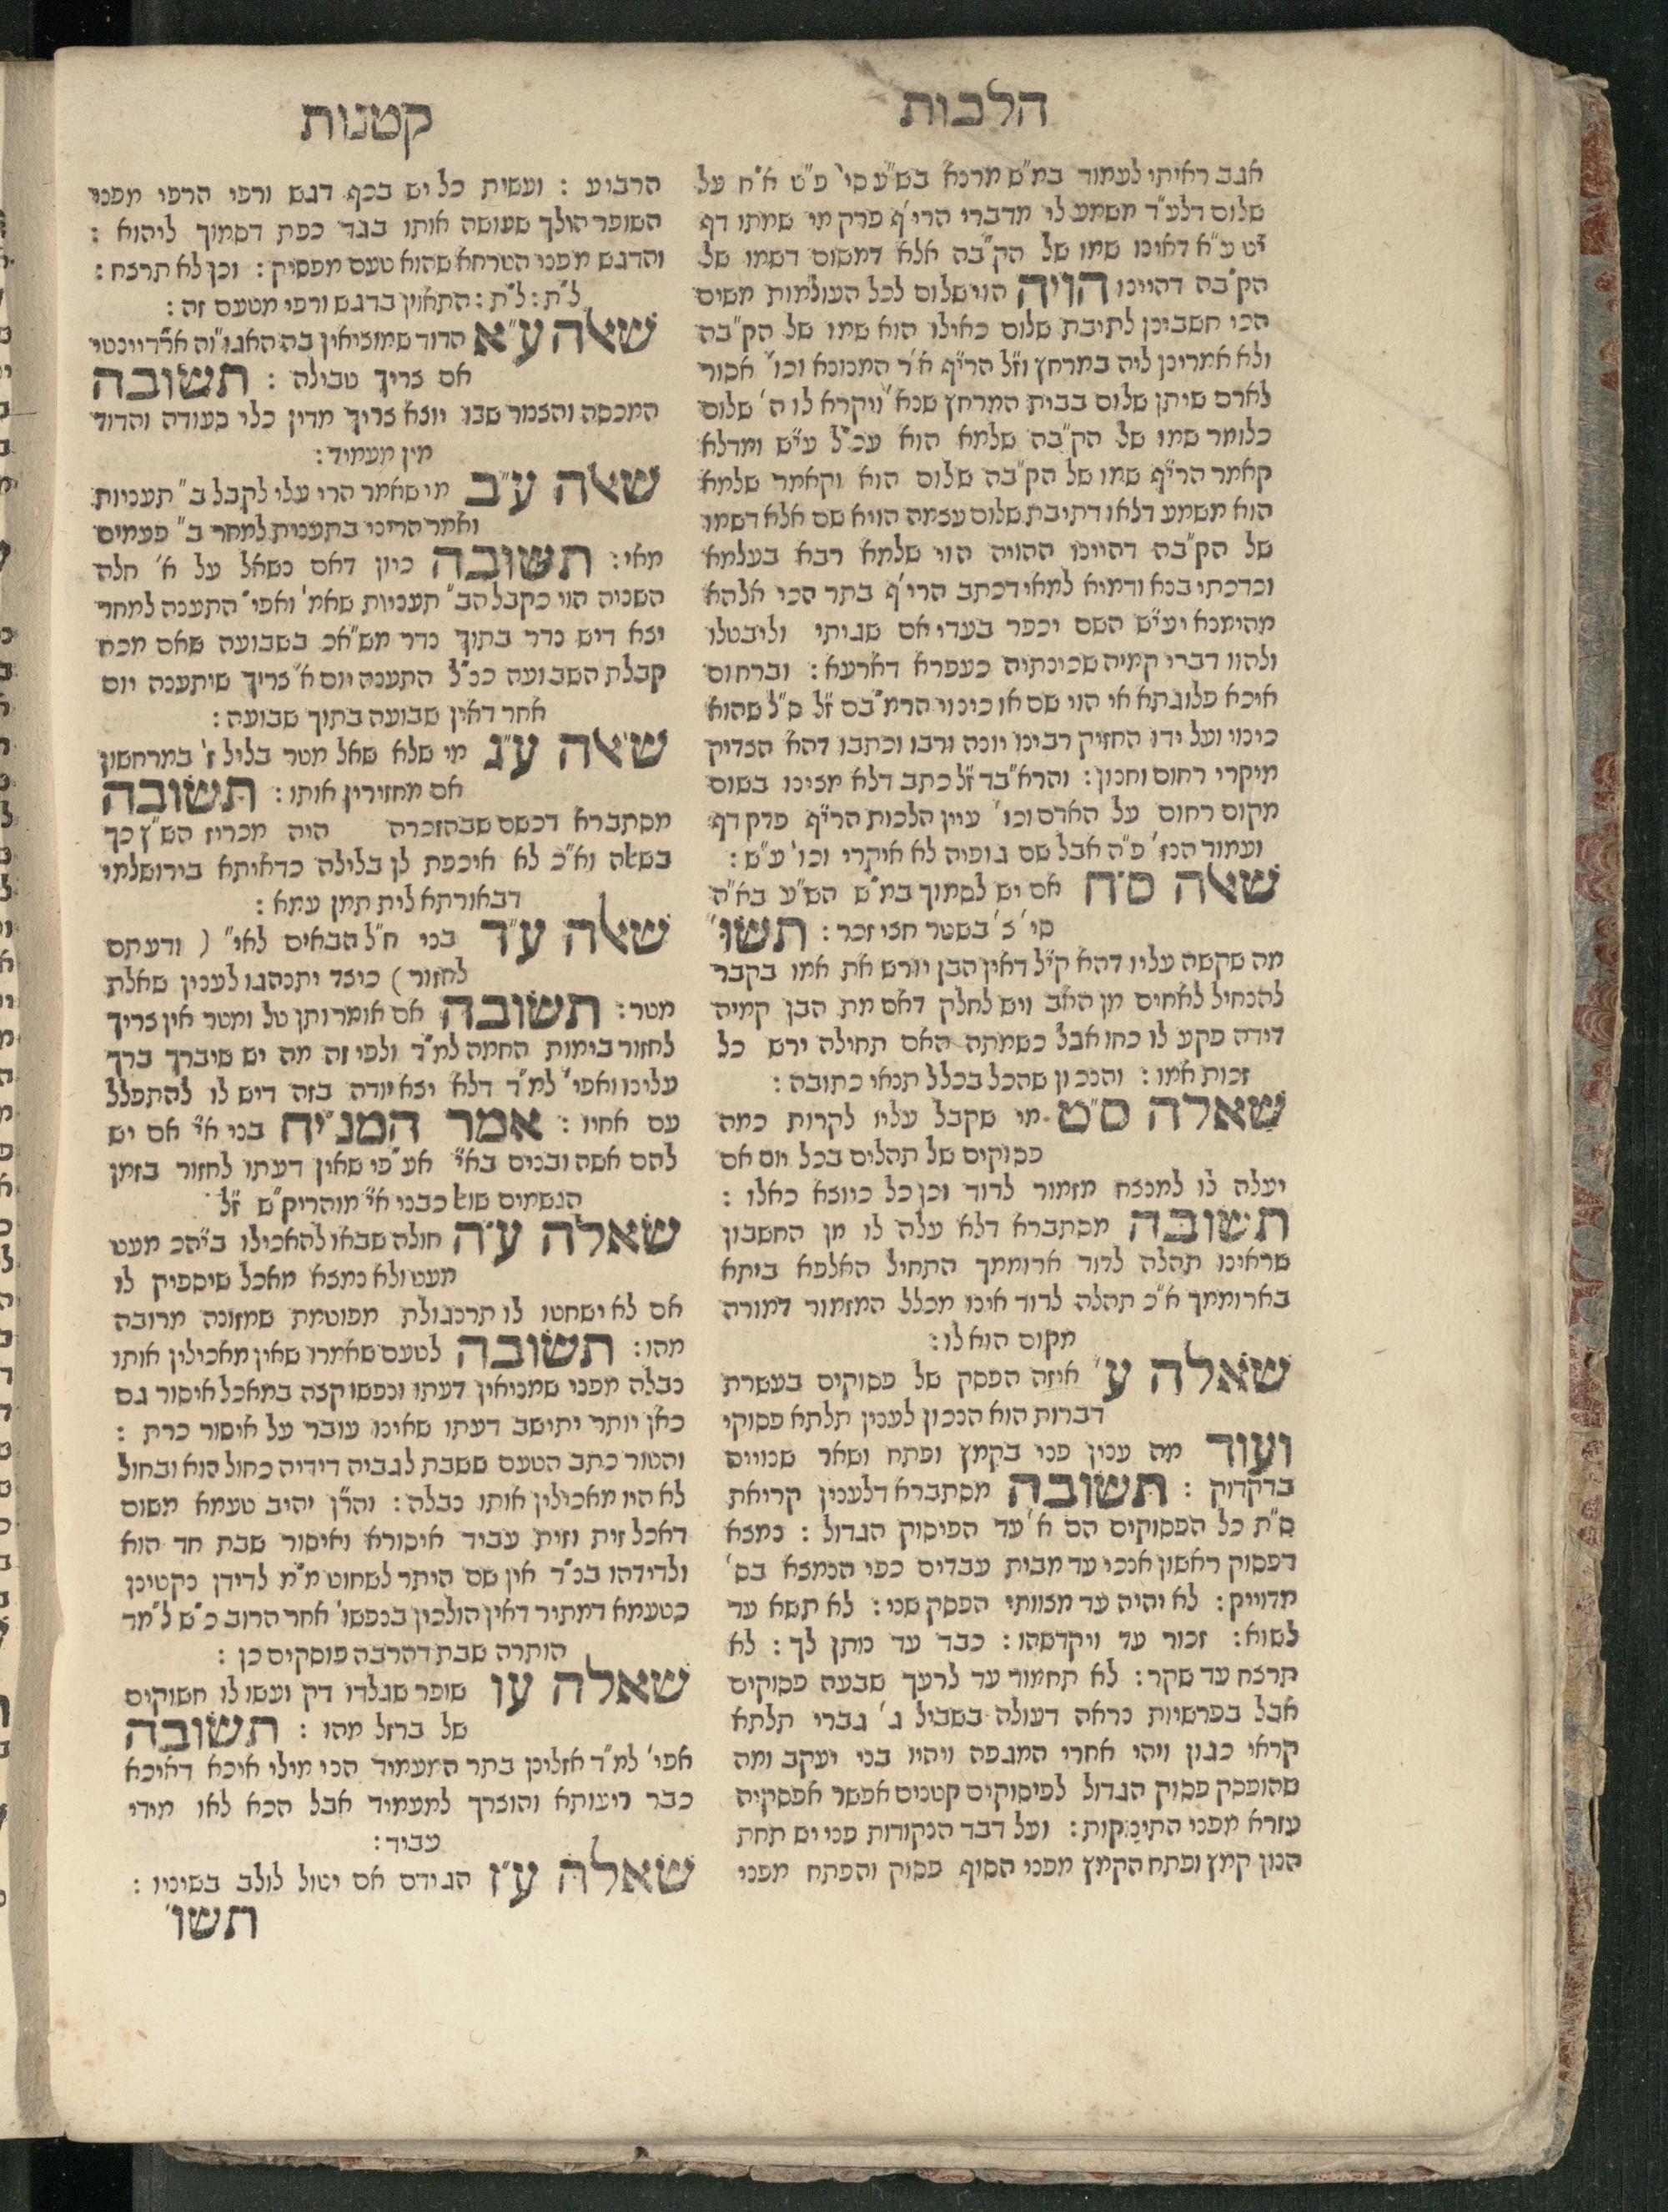 הלכות
קטנות
אגב ראיתי לעמוד במ"ש מרנא בש"ע סי' פ"ט א"ח על
שלום דלע"ד משמע לי מדברי הרי"ף פרק מי שמתו דף
י"ט ע"א דאינו שמו של הק"בה אלא דמשום דשמו של
הק"בה דהיינו הויה הוי שלום לכל העולמות משים
הכי חשבינן לתיבת שלום כאילו הוא שמו של הק"בה
ולא אמרינן ליה במרחץ וז"ל הרי"ף א"ר המנונא וכו' אסור
לאדם שיתן שלום בבית המרחץ שנא' ויקרא לו ה' שלום
כלומר שמו של הק"בה שלמא הוא עכ"ל ע"ש ומדלא
קאמר הרי"ף שמו של הק"בה שלום הוא וקאמר שלמא
הוא משמע דלאו דתיבת שלום עצמה הויא שם אלא דשמו
של הק"בה דהיינו ההויה הוי שלמא רבא בעלמא
וכדכתיבנא ודמיא למאי דכתב הרי"ף בתר הכי אלהא
מהימנא יע"ש השם יכפר בעדי אם שגיתי וליבטלו
ולהוו דברי קמיה שכינתיה כעפרא דארעא: וברחום
איכא פלוגתא אי הוי שם או כינוי הרמ"בם ז"ל ס"ל שהוא
כינוי ועל ידו החזיק רבינו יונה ורבו וכתבו דהא הצדיק
מיקרי רחום וחנון: והרא"בד ז"ל כתב דלא מצינו בשום
מקום רחום על האדם וכו' עיין הלכות הרי"ף פרק דף
ועמוד הנז' פ"ה אבל שם גופיה לא איקרי וכו' ע"ש:
שאלה ס"ח אם יש לסמוך במ"ש הש"ע בא"ה
סי' צ' בשטר חצי זכר: תשו'
מה שקשה עליו דהא ק"ל דאין הבן יורש את אמו בקבר
להנחיל לאחים מן האב ויש לחלק דאם מת הבן קמיה
דידה פקע לו כחו אבל כשמתה האם תחילה ירש כל
זכות אמו: והנכון שהכל בכלל תנאי כתובה:
שאלה ס"ט מי שקבל עליו לקרות כמה
פסוקים של תהלים בכל יום אם
יעלה לו למנצח מזמור לדוד וכן כל כיוצא כאלו:
תשובה מסתברא דלא עלה לו מן החשבון
שראינו תהלה לדוד ארוממך התחיל האלפא ביתא
בארוממך א"כ תהלה לדוד אינו מכלל המזמור דמורה
מקום הוא לו:
שאלה ע' איזה הפסק של פסוקים בעשרת
דברות הוא הנכון לענין תלתא פסוקי
ועוד מה ענין פני בקמץ ופתח ושאר שנויים
בדקדוק: תשובה מסתברא דלענין קריאת
ס"ת כל הפסוקים הם א' עד הפיסוק הגדול: נמצא
דפסוק ראשון אנכי עד מבית עבדים כפי הנמצא בס'
מדוייק: לא יהיה עד מצוותי הפסק שני: לא תשא עד
לשוא: זכור עד ויקדשהו: כבד עד נותן לך: לא
תרצח עד שקר: לא תחמוד עד לרעך שבעה פסוקים
אבל בפרשיות נראה דעולה בשביל ג' גברי תלתא
קראי כגון ויהי אחרי המגפה ויהיו בני יעקב ומה
שהופסק פסוק הגדול לפיסוקים קטנים אפשר אפסקיה
עזרא מפני התינוקות: ועל דבר הנקודות פני יש תחת
הנון קמץ ופתח הקמץ מפני הסוף פסוק והפתח מפני
הרביע: ועשית כל יש בכף דגש ורפי הרפי מפני
השופר הולך שעושה אותו בגד כפת דסמוך ליהוא:
והדגש מפני הטרחא שהוא טעם מפסיק: וכן לא תרצח:
ל"ת: ל"ת: התאוין בדגש ורפי מטעם זה:
שאלה ע"א הדוד שמוציאין בה האגו"ה ארדיינטי
אם צריך טבילה: תשובה
המכסה והצמר שבו יוצא צריך מדין כלי סעודה והדוד
מין מעמיד:
שאלה ע"ב מי שאמר הרי עלי לקבל ב' תעניות
ואמר הריני בתענית למחר ב' פעמים
מאי: תשובה כיון דאם נשאל על א' חלה
השניה הוי כקבל הב' תעניות שאמ' ואפי' התענה למחר
יצא דיש נדר בתוך נדר מש"אכ בשבועה שאם מכח
קבלת השבועה ככ"ל התענה יום א' צריך שיתענה יום
אחר דאין שבועה בתוך שבועה:
שאלה ע"ג מי שלא שאל מטר בליל ז' במרחשון
אם מחזירין אותו: תשובה
מסתברא דכשם שבהזכרה היה מכריז הש"ץ כך
בשאלה וא"כ לא איכפת לן בלילה כדאיתא בירושלמי
דבאורתא לית תמן עמא:
שאלה ע"ד בני ח"ל הבאים לא"י (ודעתם
לחזור) כיצד יתנהגו לענין שאלת
מטר: תשובה אם אומר ותן טל ומטר אין צריך
לחזור בימות החמה למ"ד ולפי זה מה יש שיברך ברך
עלינו ואפי' למ"ד דלא יצא יודה בזה דיש לו להתפלל
עם אחיו: אמר המני"ח בני א"י אם יש
להם אשה ובנים בא"י אע"פי שאין דעתו לחזור בזמן
הגשמים שואל כבני א"י מוהריק"ש ז"ל
שאלה ע"ה חולה שבאו להאכילו בי"הכ מעט
מעט ולא נמצא מאכל שיספיק לו
אם לא ישחטו לו תרנגולת מפוטמת שמזונה מרובה
מהו: תשובה לטעם שאמרו שאין מאכילין אותו
נבלה מפני שמכיאין דעתו ונפשו קצה במאכל איסור גם
כאן יותר יתישב דעתו שאינו עובר על איסור כרת:
והטור כתב הטעם ששבת לגביה דידיה כחול הוא ובחול
לא היו מאכילין אותו נבלה: והר"ן יהיב טעמא משום
דאכל זית וזית עביד איסורא ואיסור שבת חד הוא
ולדידהו בנ"ד אין שם היתר לשחוט מ"מ לדידן נקטינן
כטעמא דמתיר דאין הולכין בנפשו' אחר הרוב כ"ש למ"ד
הותרה שבת דהרבה פוסקים כן:
שאלה עו שופר שגלדו דק ועשו לו חשוקים
של ברזל מהו: תשובה
אפי' למ"ד אזלינן בתר המעמיד הני מילי איכא דאיכא
כבר ריעותא והוצרך למעמיד אבל הכא לאו מידי
עביד:
שאלה ע"ז הגידם אם יטול לולב בשיניו:
תשו'